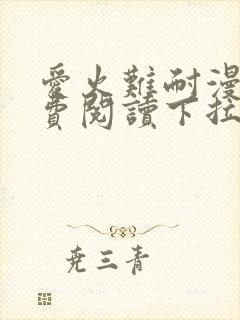 愛火難耐漫
費閱讀下拉
尭三青